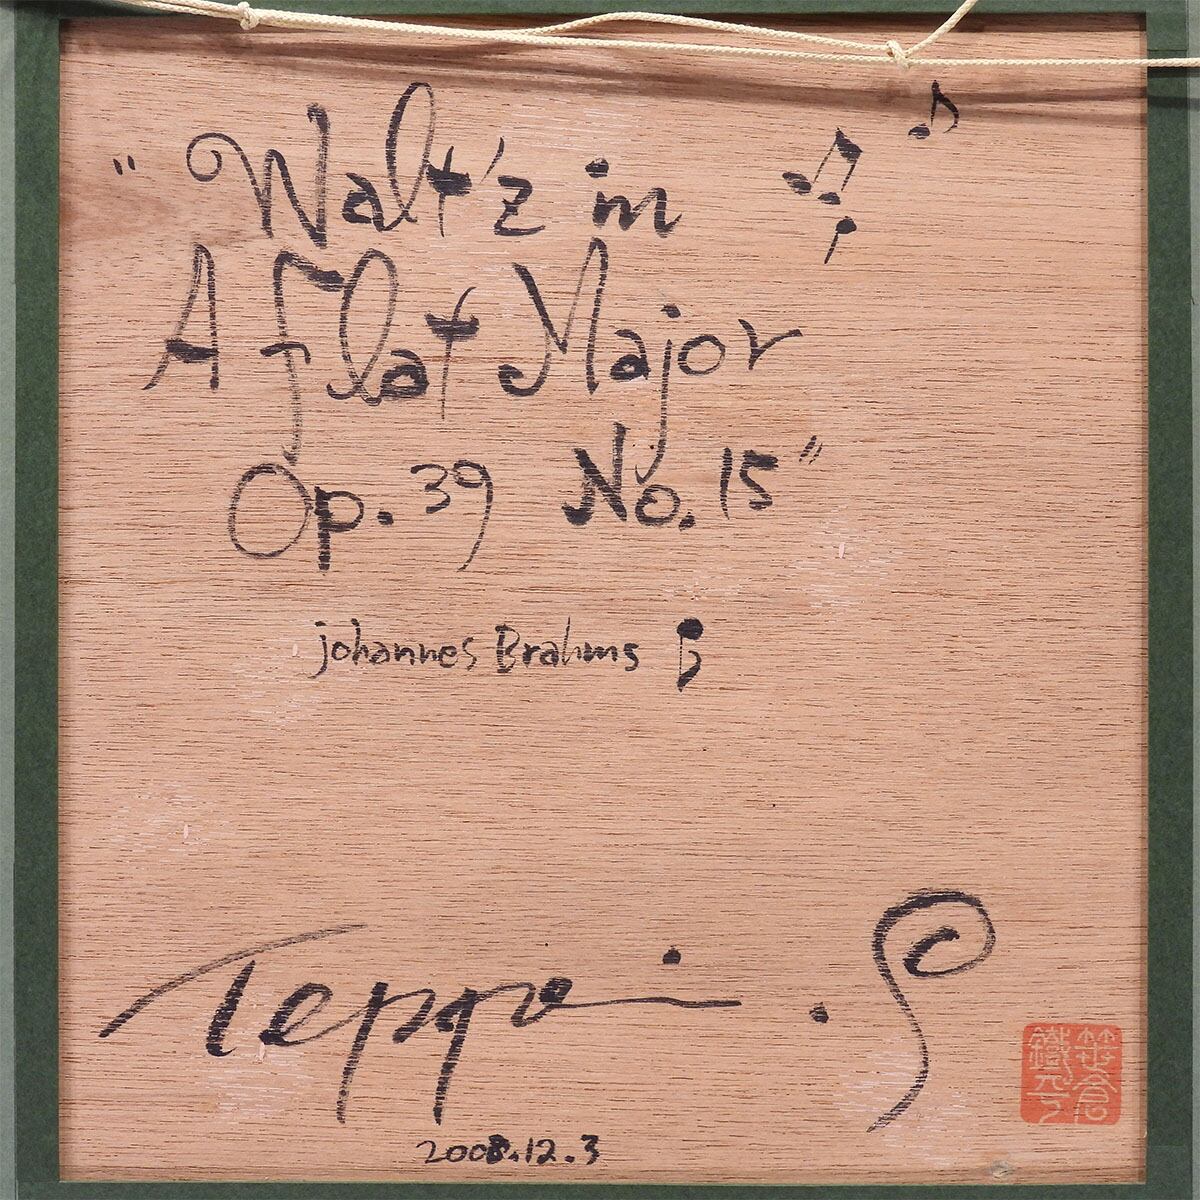 "Walt'z in
A flat Major
Op. 39 No. 15"
johannes Brahms
Teppei . S
2008.12.3
笹倉
鐵平